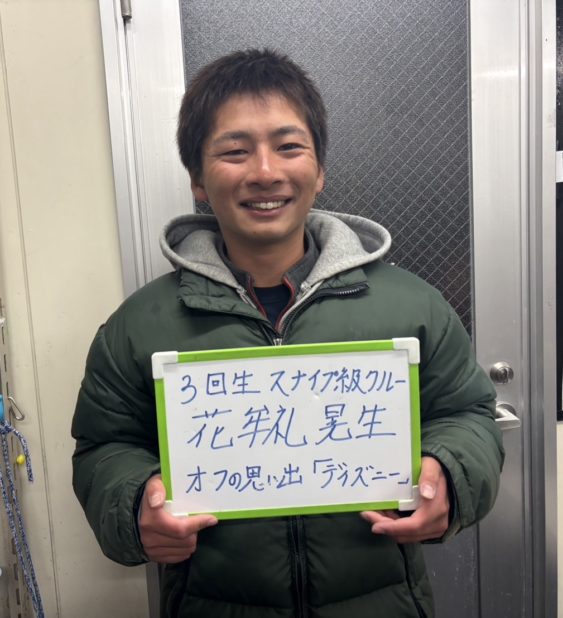 3回生 スナイプ級クルー
花牟礼 晃生
オフの思い出「ディズニー」